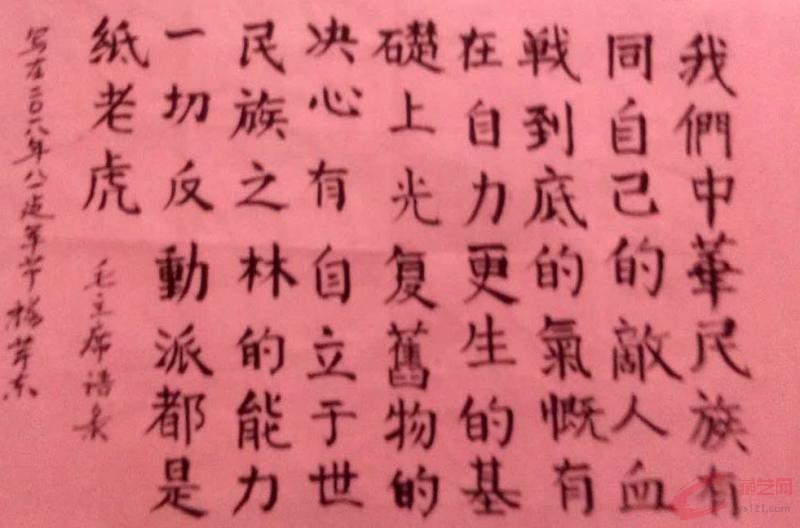 我們中華民族有
同自己的敵人血
戦到底的氣慨有
在自力更生的基
礎上光复舊物的
决心有自立于世
民族之林的能力
一切反動派都是
紙老虎
毛主席语录
写在二〇一八年八一建军节